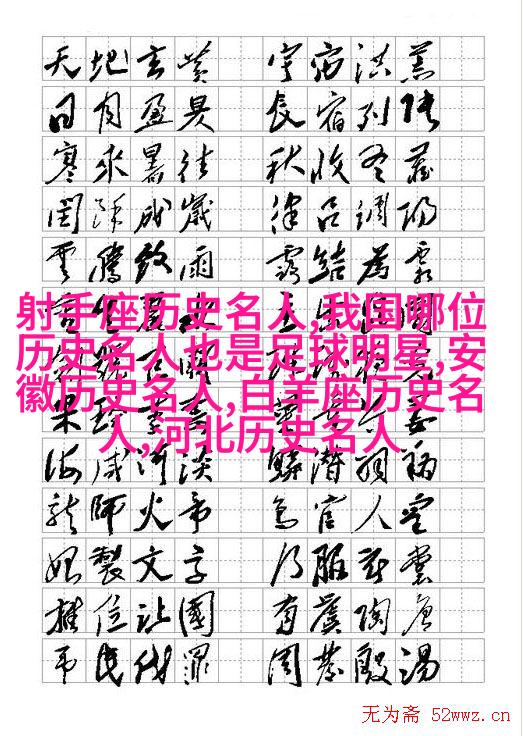 天地玄黄 宇宙洪荒
日月盈昃 辰宿列張
寒來暑往 秋收冬藏
閏餘成歲 律吕調陽
雲騰致雨 露結為霜
射手座历史名人,我国哪位
历史名人也是足球明星,安
徽历史名人,白羊座历史名
人,河北历史名人
海咸河淡 鱗潛羽翔
龍師火帝 鳥官人皇
始製文字 乃服衣裳
推位讓國 有虞陶唐
弔民伐罪 周發殷湯
无为斋 52wwz.cn